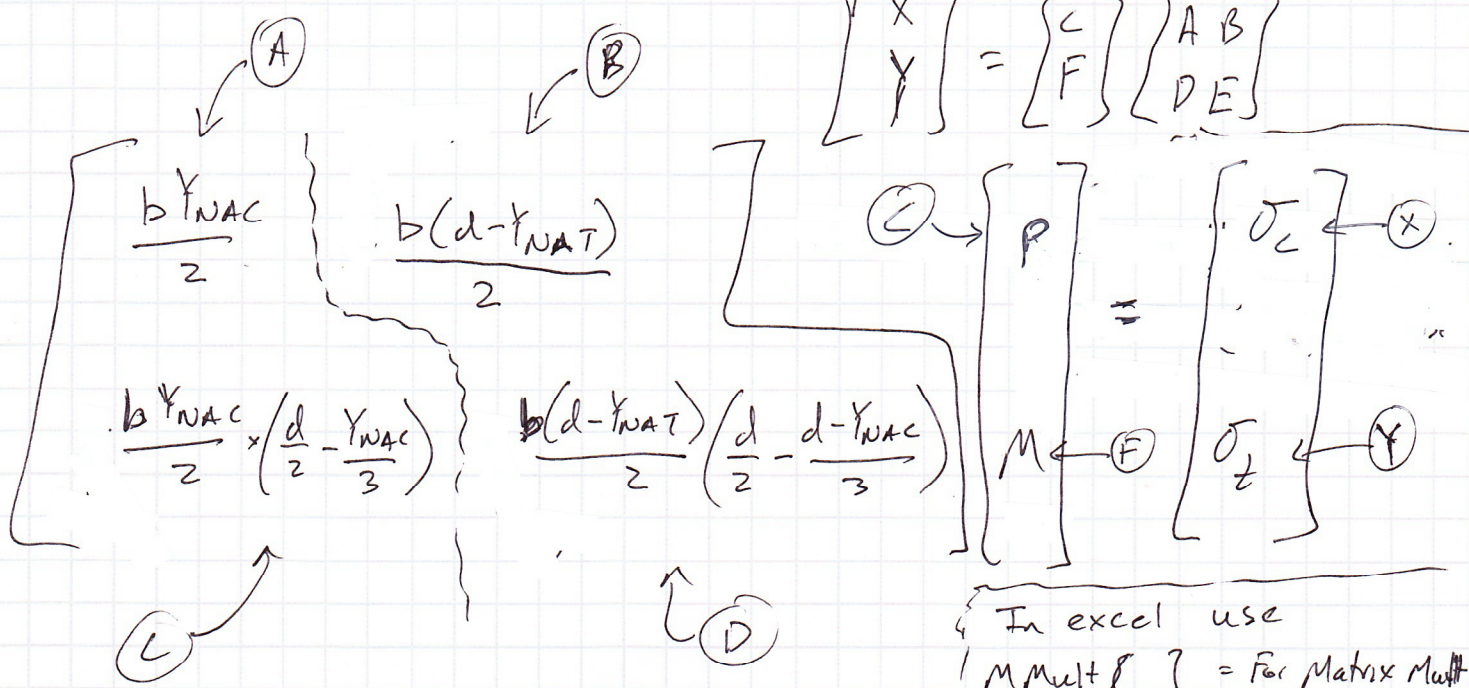 [X Y] = [C F] [A B D E]
A
B
bY_NAC / 2
b(d-Y_NAT) / 2
C → P
=
σ_c ← X
bY_NAC / 2 × (d/2 - Y_NAC/3)
b(d-Y_NAT) / 2 (d/2 - d-Y_NAC / 3)
M ← F
σ_t ← Y
C
D
In excel use
MMult { } = For Matrix Mult